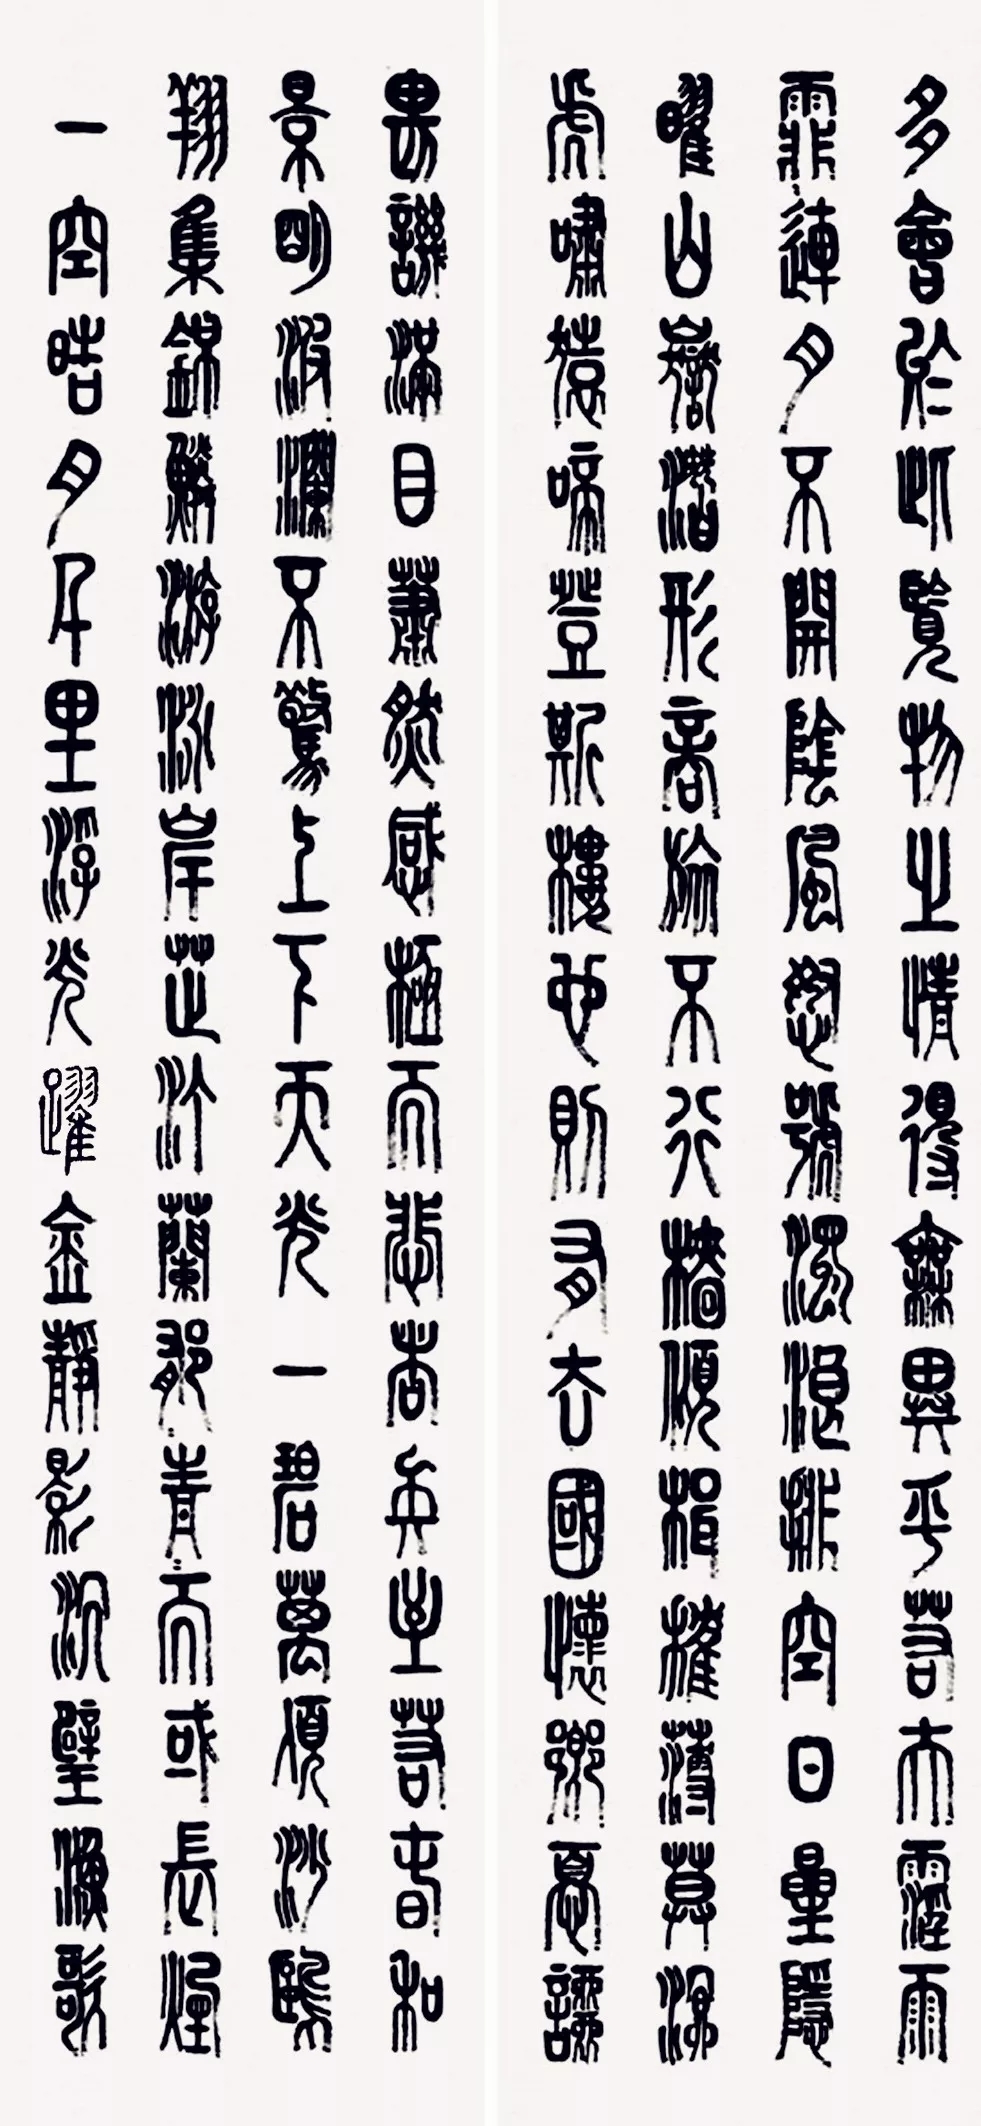 多會於此覽物之情得無異乎若夫霪雨
霏連月不開陰風怒號濁浪排空日星隱
曜山嶽潛形商旅不行檣傾楫摧薄莫冥
虎嘯猿啼登斯樓也則有去國懷鄉憂讒
畏譏滿目蕭然感極而悲者矣至若春和
景明波瀾不驚上下天光一碧萬頃沙鷗
翔集錦鱗游泳岸芷汀蘭郁青而或長煙
一空晧月千里浮光躍金靜影沉璧漁歌